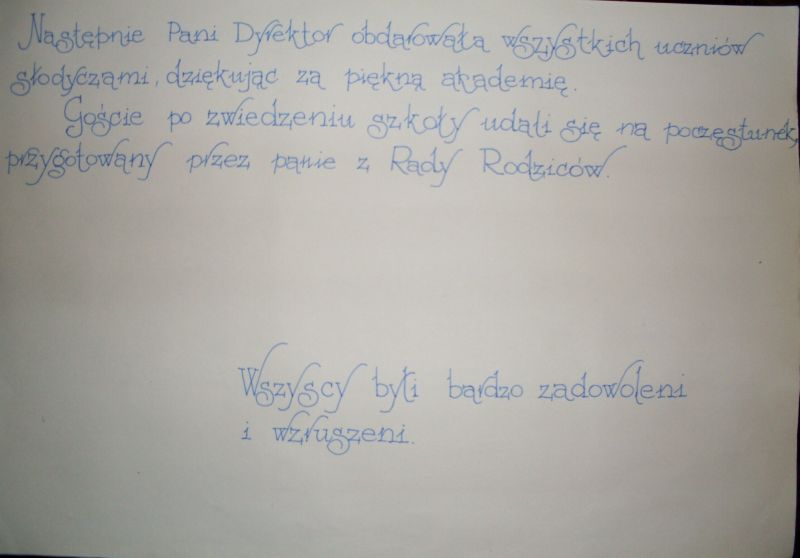 Następnie Pani Dyrektor obdarowała wszystkich uczniów
słodyczami, dziękując za piękną akademię.
Goście po zwiedzeniu szkoły udali się na poczęstunek,
przygotowany przez panie z Rady Rodziców.
Wszyscy byli bardzo zadowoleni
i wzruszeni.